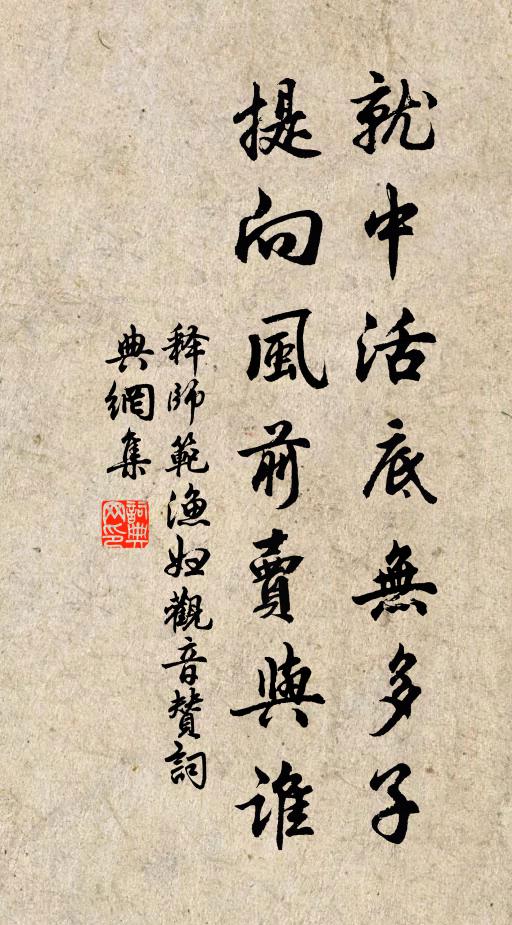 就中活底無多子
提向風前賣與誰
释師範漁婦觀音贊詞
典網集
詞典
网印